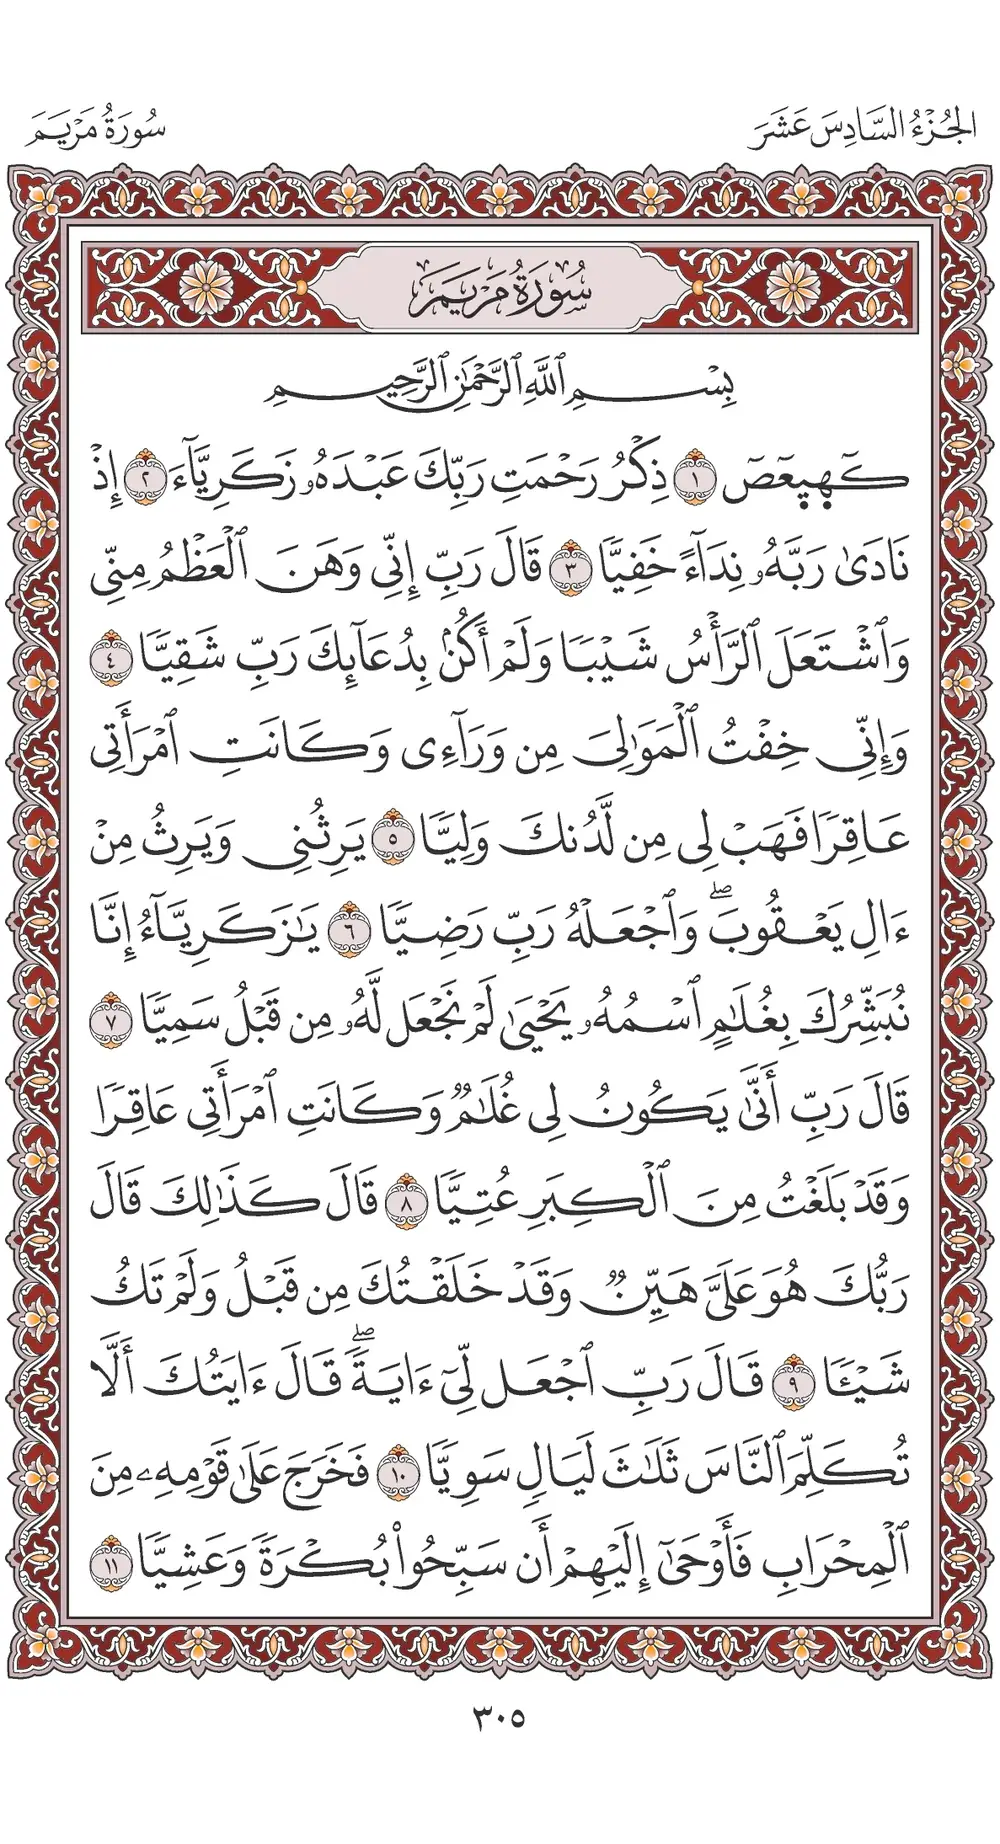 الجُزْءُ السَّادِسَ عَشَرَ
سُورَةُ مَرْيَمَ
سُورَةُ مَرْيَمَ
بِسْمِ ٱللَّهِ ٱلرَّحْمَٰنِ ٱلرَّحِيمِ
كٓهيعٓصٓ ١ ذِكْرُ رَحْمَتِ رَبِّكَ عَبْدَهُۥ زَكَرِيَّآءَ ٢ إِذْ
نَادَىٰ رَبَّهُۥ نِدَآءً خَفِيّٗا ٣ قَالَ رَبِّ إِنِّي وَهَنَ ٱلْعَظْمُ مِنِّي
وَٱشْتَعَلَ ٱلرَّأْسُ شَيْبٗا وَلَمْ أَكُنۢ بِدُعَآئِكَ رَبِّ شَقِيّٗا ٤
وَإِنِّي خِفْتُ ٱلْمَوَٰلِيَ مِن وَرَآءِي وَكَانَتِ ٱمْرَأَتِي
عَاقِرٗا فَهَبْ لِي مِن لَّدُنكَ وَلِيّٗا ٥ يَرِثُنِي وَيَرِثُ مِنْ
ءَالِ يَعْقُوبَۖ وَٱجْعَلْهُ رَبِّ رَضِيّٗا ٦ يَٰزَكَرِيَّآءُ إِنَّا
نُبَشِّرُكَ بِغُلَٰمٍ ٱسْمُهُۥ يَحْيَىٰ لَمْ نَجْعَل لَّهُۥ مِن قَبْلُ سَمِيّٗا ٧
قَالَ رَبِّ أَنَّىٰ يَكُونُ لِي غُلَٰمٞ وَكَانَتِ ٱمْرَأَتِي عَاقِرٗا
وَقَدْ بَلَغْتُ مِنَ ٱلْكِبَرِ عُتِيّٗا ٨ قَالَ كَذَٰلِكَ قَالَ
رَبُّكَ هُوَ عَلَيَّ هَيِّنٞ وَقَدْ خَلَقْتُكَ مِن قَبْلُ وَلَمْ تَكُ
شَيْـٔٗا ٩ قَالَ رَبِّ ٱجْعَل لِّيٓ ءَايَةٗۖ قَالَ ءَايَتُكَ أَلَّا
تُكَلِّمَ ٱلنَّاسَ ثَلَٰثَ لَيَالٖ سَوِيّٗا ١٠ فَخَرَجَ عَلَىٰ قَوْمِهِۦ مِنَ
ٱلْمِحْرَابِ فَأَوْحَىٰٓ إِلَيْهِمْ أَن سَبِّحُوا۟ بُكْرَةٗ وَعَشِيّٗا ١١
٣٠٥